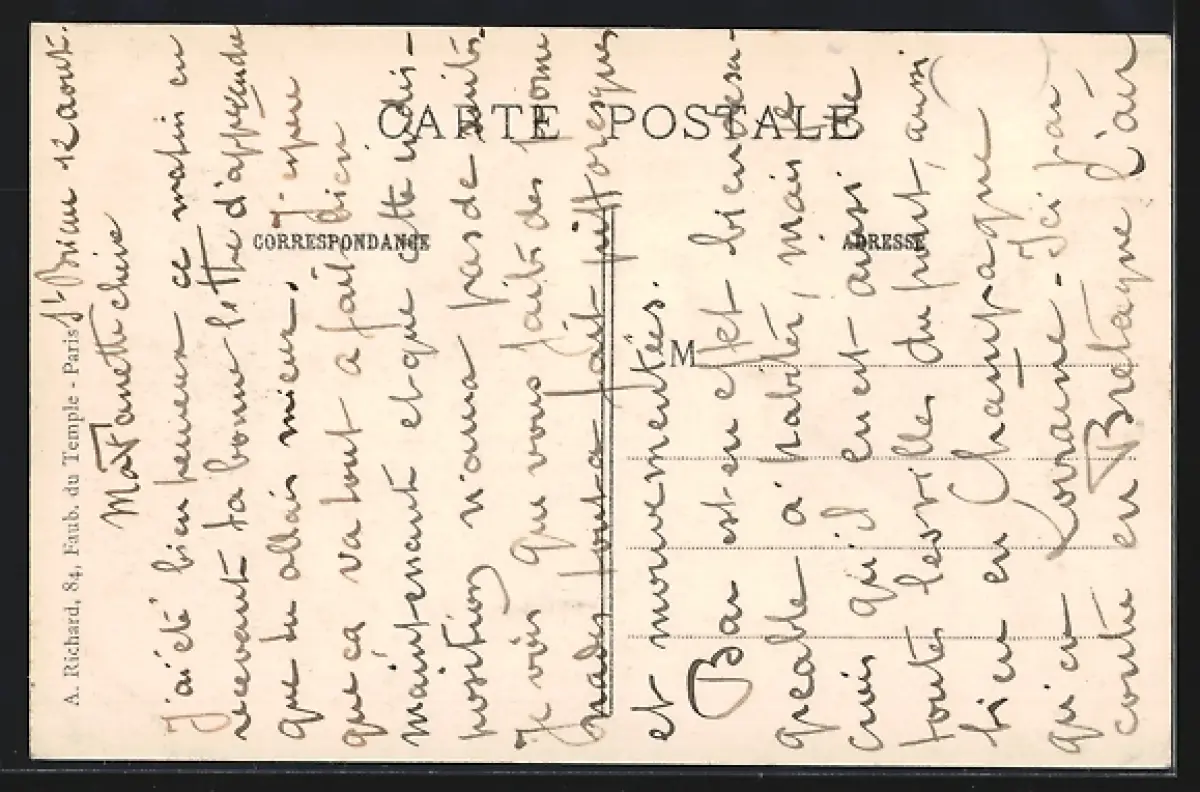 CARTE POSTALE
CORRESPONDANCE
ADRESSE
M
A. Richard, 84, Faub. du Temple - Paris
St Brieuc 12 aout.
Ma Fanette chérie
J'ai été bien heureux ce matin en
recevant ta bonne lettre d'apprendre
que tu allais mieux. J'espère
que ça va tout à fait bien
maintenant et que cette indis-
position n'aura pas de suites.
Je vois que vous faites des prome
nades tout à fait pittoresques
et mouvementées.
Bar est en effet bien désa-
gréable à habiter, mais je
crois qu'il en est ainsi de
toutes les villes du front, aussi
bien en Champagne
qu'en Lorraine - Ici par
contre en Bretagne l'air